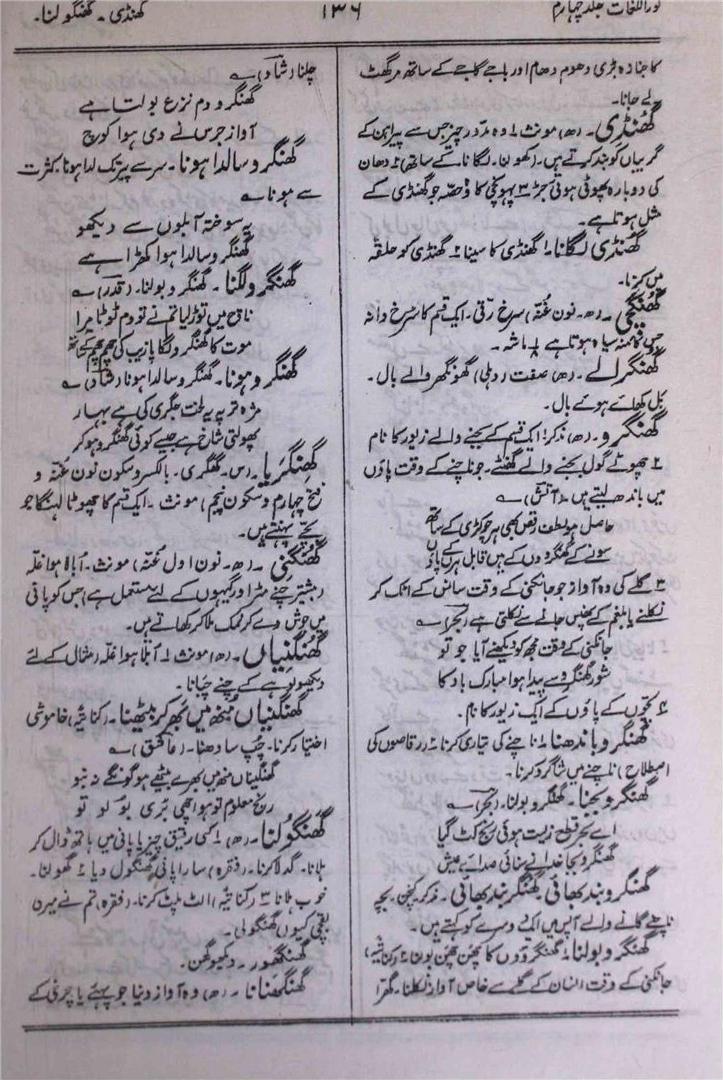 نوراللغات جلد چہارم
۱۳۶
گھنڈی۔ گھنگولنا۔
کا جنازہ بڑی دھوم دھام اور باجے گاجے کے ساتھ مرگھٹ
لے جانا۔
گھُنڈی۔ (ھ) مونث ۱ وہ مدّور چیز جس سے پیراہن کے
گریباں کو بند کرتے ہیں۔ (کھولنا۔ لگانا کے ساتھ) ۲ دھان
کی دوبارہ پھوٹی ہوئی جڑ ۳ پہونچی کا وہ حصّہ جو گھنڈی کے
مثل ہوتا ہے۔
گھُنڈی لگانا ۱ گھنڈی کا سینا ۲ گھنڈی کو حلقہ
میں کرنا۔
گھُنگچی۔ (ھ۔ نون غنّہ) سرخ رتّی۔ ایک قسم کا سُرخ دانہ
جس کا منہ سیاہ ہوتا ہے ۸ ماشہ۔
گھُنگرالے۔ (ھ) صفت (دہلی) گھونگھر والے بال۔
بَل کھائے ہوئے بال۔
گھُنگرو۔ (ھ) مذکر ۱ ایک قسم کے بجنے والے زیور کا نام
۲ چھوٹے گول بجنے والے گھنٹے۔ جو ناچنے کے وقت پاؤں
میں باندھ لیتے ہیں۔ (آتش) ؎
حاصل ہو لطف رقص بھی ہر چوکڑی کے ساتھ
سونے کے گھنگروؤں کے ہیں قابل ہرن کے پاؤں
۳ گلے کی وہ آواز جو جانکنی کے وقت سانس کے اٹک کر
نکلنے یا بلغم کے پھنس جانے سے نکلتی ہے (بحر) ؎
جانکنی کے وقت مجھ کو دیکھنے آیا جو تو
شور گھنگرو سے پیدا ہوا مبارک باد کا
۴ بچّوں کے پاؤں کے ایک زیور کا نام۔
گھنگرو باندھنا ۱ ناچنے کی تیاری کرنا ۲ (رقاصوں کی
اصطلاح) ناچنے میں شاگرد کرنا۔
گھنگرو بجنا۔ گھنگرو بولنا۔ (بحر) ؎
اے بحر قطع زیست ہوئی رنج کٹ گیا
گھنگرو بجا خدا نے سنائی صدائے عیش
گھنگرو بند بھائی گھنگر بند بھائی۔ مذکر۔ کنچن بچہ
ناچنے گانے والے آپس میں ایک دوسرے کو کہتے ہیں۔
گھنگرو بولنا ۱ گھنگروؤں کا چھن چھن بولنا ۲ (کنایتہً)
جانکنی کے وقت انسان کے گلے سے خاص آواز نکلنا۔ گھرّا
چلنا (شاد) ؎
گھنگرو دم نزع بولتا ہے
آواز جرس نے دی ہوا کوچ
گھنگرو سا لدا ہونا۔ سر سے پیر تک لدا ہونا۔ بکثرت
سے ہونا ؎
یہ سوختہ آبلوں سے دیکھو
گھنگرو سا لدا ہوا کھڑا ہے
گھنگرو لگنا۔ گھنگرو بولنا۔ (قدر) ؎
ناچ میں توڑ لیا تم نے تو دم ٹوٹا مرا
موت کا گھنگرو لگا پازیب کی چھم چھم کے ساتھ
گھنگرو ہونا۔ گھنگرو سا لدا ہونا (شاد) ؎
مژہ تر پہ یہ لخت جگری کی ہے بہار
پھولتی شاخ ہے جیسے کوئی گھنگرو ہو کر
گھِنگریا۔ (س۔ گھگری۔ بالکسر و سکون نون غنّہ و
فتح چہارم و سکون پنجم) مونث۔ ایک قسم کا چھوٹا لہنگا جو
بچّے پہنتے ہیں۔
گھُنگنی۔ (ھ۔ نون اول غنّہ) مونث۔ اُبالا ہوا غلّہ
(بیشتر چنے مٹر اور گیہوں کے لئے مستعمل ہے) جس کو پانی
میں جوش دے کر نمک ملا کر کھاتے ہیں۔
گھُنگنیاں۔ (ھ) مونث ۱۔ اُبلا ہوا غلّہ (مثال کے لئے
دیکھو لوہے کے چنے چبانا۔
گھُنگنیاں منھ میں بھر کر بیٹھنا۔ (کنایتہً) خاموشی
اختیار کرنا۔ چُپ سادھنا۔ (عاشق) ؎
گھنگنیاں منھ میں بھرے بیٹھے ہو گونگے نہ بنو
رنج معلوم تو ہو اچھی بُری بولو تو
گھنگولنا۔ (ھ) ۱ کسی رقیق چیز یا پانی میں ہاتھ ڈال کر
ہلانا۔ گدلا کرنا۔ (فقرہ) سارا پانی گھنگول دیا ۲ گھولنا۔
خوب ہلانا ۳ (کنایتہً) الٹ پلٹ کرنا۔ (فقرہ) تم نے میری
بقچی کیوں گھنگولی۔
گھنگھور۔ دیکھو گھن۔
گھنگھنانا۔ (ھ) وہ آواز دینا جو پہئے یا چرخی کے